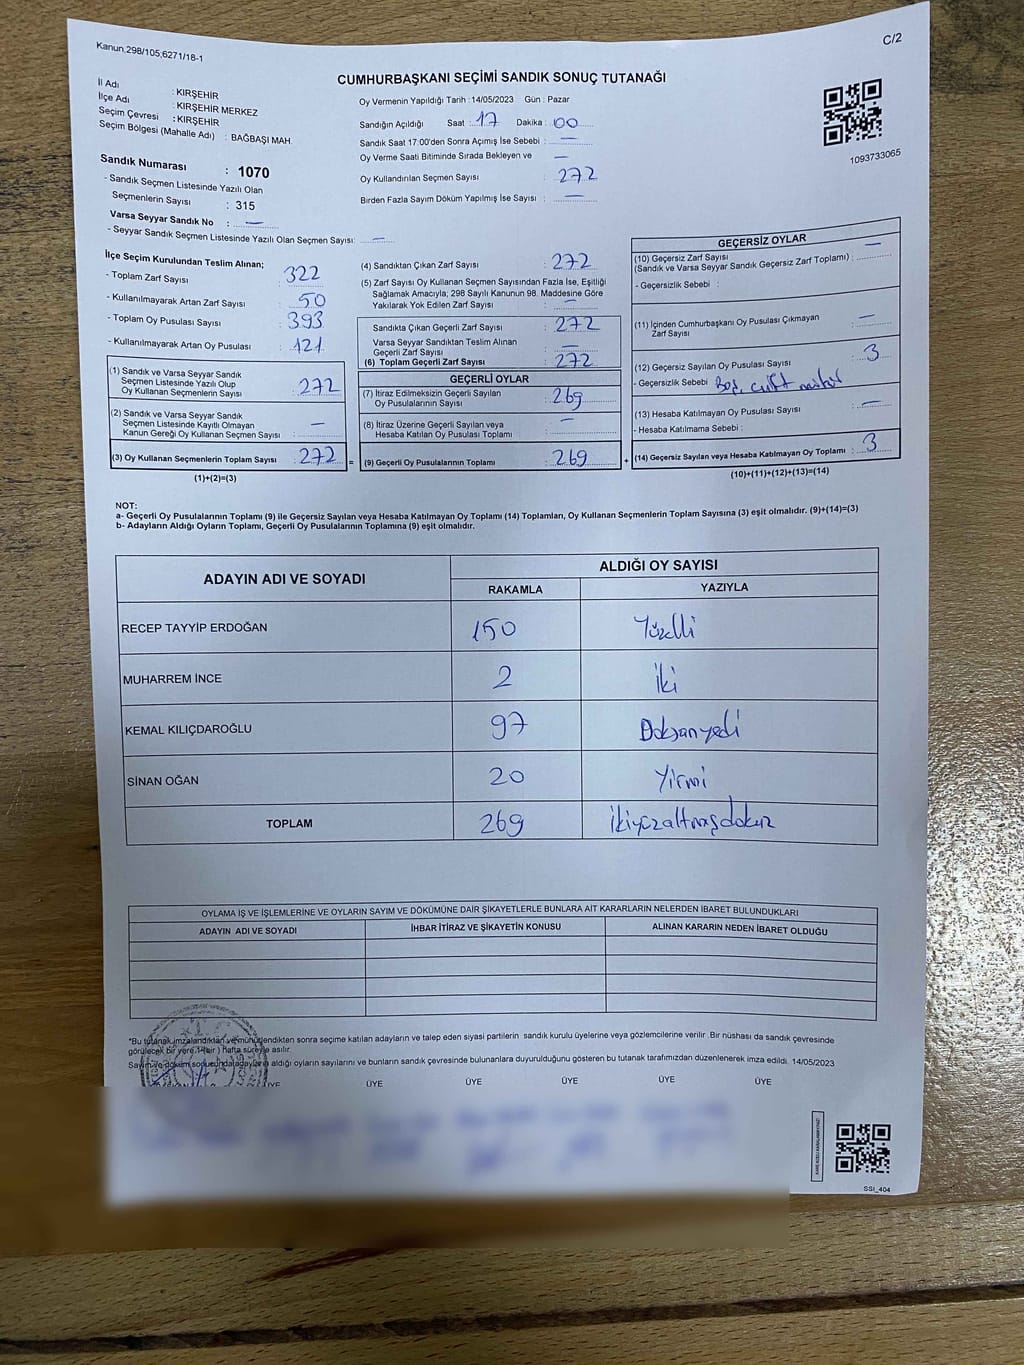 Kanun,298/105,6271/18-1
C/2
CUMHURBAŞKANI SEÇİMİ SANDIK SONUÇ TUTANAĞI
İl Adı : KIRŞEHİR
İlçe Adı : KIRŞEHİR MERKEZ
Seçim Çevresi : KIRŞEHİR
Seçim Bölgesi (Mahalle Adı) : BAĞBAŞI MAH.
Sandık Numarası : 1070
- Sandık Seçmen Listesinde Yazılı Olan
Seçmenlerin Sayısı : 315
Varsa Seyyar Sandık No : —
- Seyyar Sandık Seçmen Listesinde Yazılı Olan Seçmen Sayısı: —
Oy Vermenin Yapıldığı Tarih :14/05/2023 Gün : Pazar
Sandığın Açıldığı Saat : 17 Dakika : 00
Sandık Saat 17:00'den Sonra Açımış İse Sebebi : —
Oy Verme Saati Bitiminde Sırada Bekleyen ve —
Oy Kullandırılan Seçmen Sayısı : 272
Birden Fazla Sayım Döküm Yapılmış İse Sayısı : —
1093733065
İlçe Seçim Kurulundan Teslim Alınan;
- Toplam Zarf Sayısı : 322
- Kullanılmayarak Artan Zarf Sayısı : 50
- Toplam Oy Pusulası Sayısı : 393
- Kullanılmayarak Artan Oy Pusulası : 121
(1) Sandık ve Varsa Seyyar Sandık
Seçmen Listesinde Yazılı Olup
Oy Kullanan Seçmenlerin Sayısı : 272
(2) Sandık ve Varsa Seyyar Sandık
Seçmen Listesinde Kayıtlı Olmayan
Kanun Gereği Oy Kullanan Seçmen Sayısı : —
(3) Oy Kullanan Seçmenlerin Toplam Sayısı : 272 =
(1)+(2)=(3)
(4) Sandıktan Çıkan Zarf Sayısı : 272
(5) Zarf Sayısı Oy Kullanan Seçmen Sayısından Fazla İse, Eşitliği
Sağlamak Amacıyla, 298 Sayılı Kanunun 98. Maddesine Göre
Yakılarak Yok Edilen Zarf Sayısı : —
Sandıkta Çıkan Geçerli Zarf Sayısı : 272
Varsa Seyyar Sandıktan Teslim Alınan
Geçerli Zarf Sayısı : —
(6) Toplam Geçerli Zarf Sayısı : 272
GEÇERLİ OYLAR
(7) İtiraz Edilmeksizin Geçerli Sayılan
Oy Pusulalarının Sayısı : 269
(8) İtiraz Üzerine Geçerli Sayılan veya
Hesaba Katılan Oy Pusulası Toplamı : —
(9) Geçerli Oy Pusulalarının Toplamı : 269 +
GEÇERSİZ OYLAR
(10) Geçersiz Zarf Sayısı —
(Sandık ve Varsa Seyyar Sandık Geçersiz Zarf Toplamı) :
- Geçersizlik Sebebi :
(11) İçinden Cumhurbaşkanı Oy Pusulası Çıkmayan
Zarf Sayısı : —
(12) Geçersiz Sayılan Oy Pusulası Sayısı : 3
- Geçersizlik Sebebi Boş, çift
(13) Hesaba Katılmayan Oy Pusulası Sayısı : —
- Hesaba Katılmama Sebebi :
(14) Geçersiz Sayılan veya Hesaba Katılmayan Oy Toplamı : 3
(10)+(11)+(12)+(13)=(14)
NOT:
a- Geçerli Oy Pusulalarının Toplamı (9) ile Geçersiz Sayılan veya Hesaba Katılmayan Oy Toplamı (14) Toplamları, Oy Kullanan Seçmenlerin Toplam Sayısına (3) eşit olmalıdır. (9)+(14)=(3)
b- Adayların Aldığı Oyların Toplamı, Geçerli Oy Pusulalarının Toplamına (9) eşit olmalıdır.
ADAYIN ADI VE SOYADI
ALDIĞI OY SAYISI
RAKAMLA YAZIYLA
RECEP TAYYİP ERDOĞAN 150 Yüzelli
MUHARREM İNCE 2 iki
KEMAL KILIÇDAROĞLU 97 Doksanyedi
SİNAN OĞAN 20 Yirmi
TOPLAM 269 ikiyüzaltmışdokuz
OYLAMA İŞ VE İŞLEMLERİNE VE OYLARIN SAYIM VE DÖKÜMÜNE DAİR ŞİKAYETLERLE BUNLARA AİT KARARLARIN NELERDEN İBARET BULUNDUKLARI
ADAYIN ADI VE SOYADI İHBAR İTİRAZ VE ŞİKAYETİN KONUSU ALINAN KARARIN NEDEN İBARET OLDUĞU
*Bu tutanak imzalandıktan ve mühürlendikten sonra seçime katılan adayların ve talep eden siyasi partilerin sandık kurulu üyelerine veya gözlemcilerine verilir .Bir nüshası da sandık çevresinde
görülecek bir yere 1 (bir ) hafta süreyle asılır.
Sayım ve döküm sonucunda adayların aldığı oyların sayılarını ve bunların sandık çevresinde bulunanlara duyurulduğunu gösteren bu tutanak tarafımızdan düzenlenerek imza edildi. 14/05/2023
ÜYE ÜYE ÜYE ÜYE ÜYE ÜYE
SSI_404